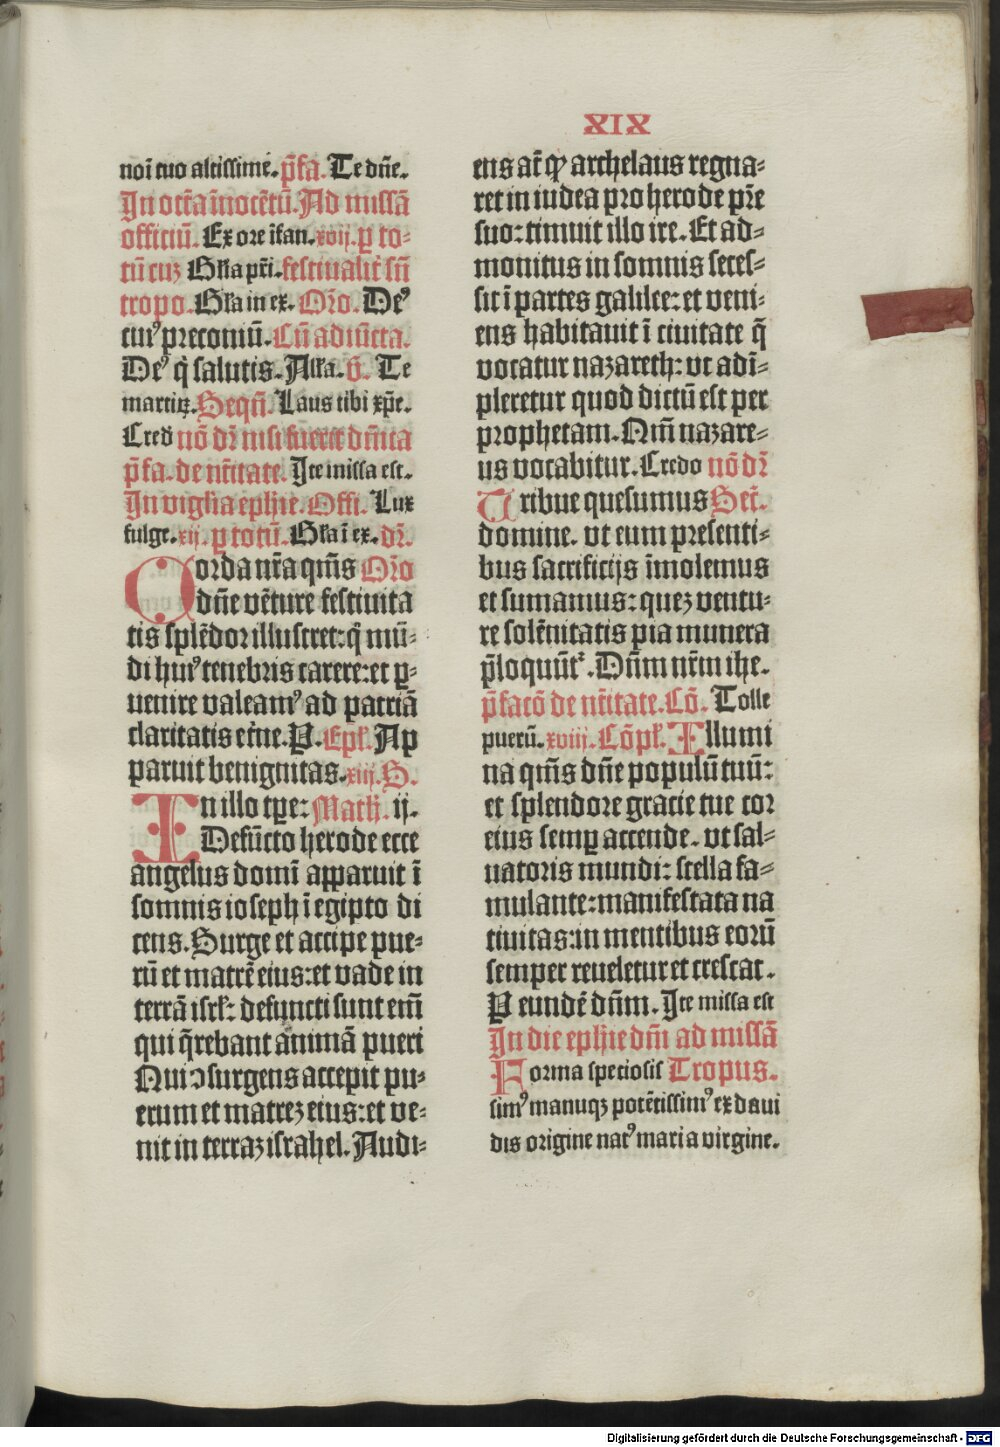 XIX
noī tuo altissime. p̄fa. Te dn̄e.
In octa īnocētū. Ad missā
officiū. Ex ore īfan. xvij. p to-
tū cuz Glīa pri. festiualit sū
tropo. Glīa in ex. Orō. De⁹
cui⁹ preconiū. Cū adiūcta.
De⁹ q̄ salutis. Alla. v̄. Te
martiꝝ. Sequē. Laus tibi xp̄e.
Cred nō dr̄ nisi fuerit dn̄ica
p̄fa. de nr̄itate. Ite missa est.
In viglia ephīe. Offi. Lux
fulge. xij. p totū. Glīa ī ex. dr̄.
Corda nr̄a qm̄s Orō
dn̄e vēture festiuita
tis splēdor illustret: q̄ mū-
di hui⁹ tenebris carere: et ꝑ-
uenire valeam⁹ ad patriā
claritatis etr̄ne. P. Epl̄. Ap
paruit benignitas. xiij. S.
In illo tp̄e: Math. ij.
Defūcto herode ecce
angelus domī apparuit ī
somnis ioseph ī egipto di
cens. Surge et accipe pue-
rū et matrē eius: et vade in
terrā isrl̄: defuncti sunt em̄
qui q̄rebant animā pueri
Qui ↄsurgens accepit pu-
erum et matreꝫ eius: et ve-
nit in terraꝫ israhel. Audi-
ens at̄ ꝙ archelaus regna-
ret in iudea pro herode pr̄e
suo: timuit illo ire. Et ad-
monitus in somnis seces-
sit ī partes galilee: et veni-
ens habitauit ī ciuitate q̄
vocatur nazareth: vt adī-
pleretur quod dictū est per
prophetam. Qm̄ nazare-
us vocabitur. Credo nō dr̄
Tribue quesumus Secr̄.
domine. vt eum presenti-
bus sacrificijs īmolemus
et sumamus: queꝫ ventu-
re solēnitatis pia munera
p̄loquūt᷑. Dn̄m nr̄m ihe.
p̄facō de nr̄itate. Cō. Tolle
puerū. xviij. Cōpl̄. Illumi
na qm̄s dn̄e populū tuū:
et splendore gracie tue cor
eius semꝑ accende. vt sal-
uatoris mundi: stella fa-
mulante: manifestata na
tiuitas: in mentibus eorū
semper reueletur et crescat.
P eundē dn̄m. Ite missa est
In die ephīe dn̄i ad missā
Forma speciosis Tropus.
sim⁹ manuqꝫ potētissim⁹ ex daui
dis origine nat⁹ maria virgine.
Digitalisierung gefördert durch die Deutsche Forschungsgemeinschaft - DFG